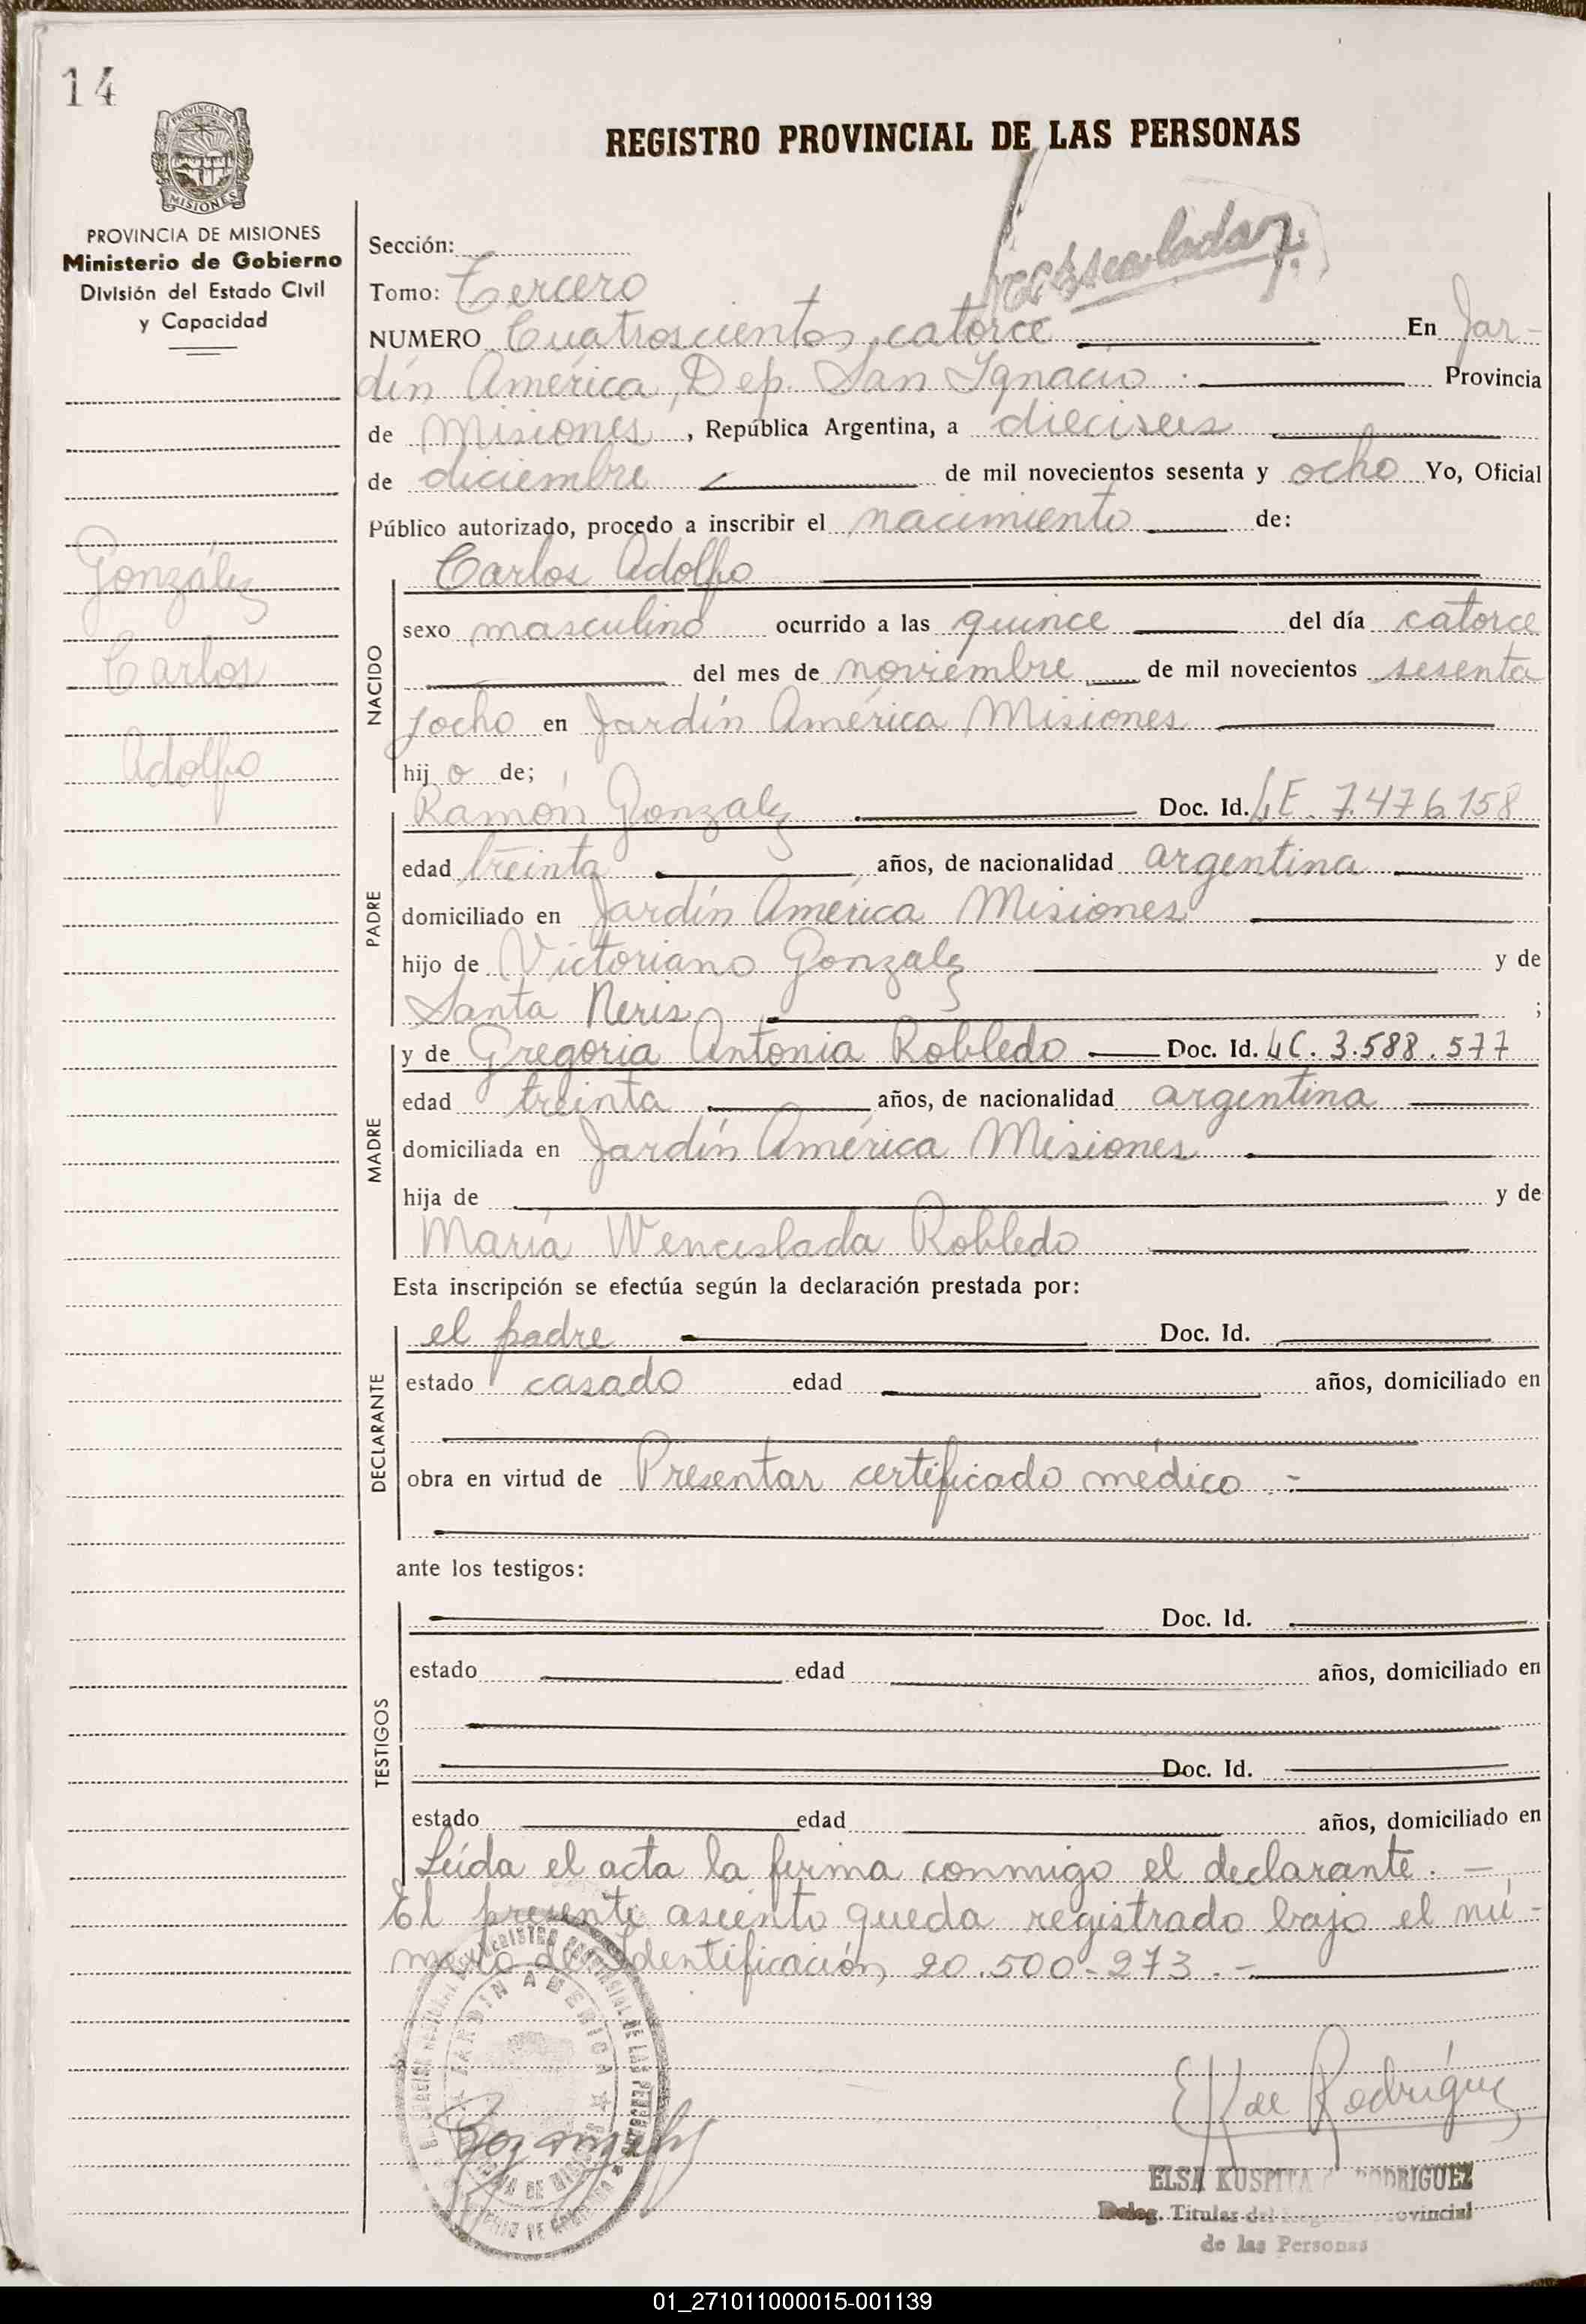 14
PROVINCIA DE
MISIONES
PROVINCIA DE MISIONES
Ministerio de Gobierno
División del Estado Civil
y Capacidad
González
Carlos
Adolfo
REGISTRO PROVINCIAL DE LAS PERSONAS
Sección:
Tomo: Tercero
NUMERO Cuatroscientos catorce En Jar-
dín América, Dep. San Ignacio. Provincia
de Misiones, República Argentina, a dieciseis
de diciembre de mil novecientos sesenta y ocho Yo, Oficial
Público autorizado, procedo a inscribir el nacimiento de:
NACIDO
Carlos Adolfo
sexo masculino ocurrido a las quince del día catorce
del mes de noviembre de mil novecientos sesenta
y ocho en Jardín América Misiones
hij o de;
PADRE
Ramón Gonzalez Doc. Id. LE. 7.476.158
edad treinta años, de nacionalidad argentina
domiciliado en Jardín América Misiones
hijo de Victoriano Gonzalez y de
Santa Neris ;
MADRE
y de Gregoria Antonia Robledo Doc. Id. LC. 3.588.577
edad treinta años, de nacionalidad argentina
domiciliada en Jardín América Misiones
hija de y de
María Wenceslada Robledo
Esta inscripción se efectúa según la declaración prestada por:
DECLARANTE
el padre Doc. Id.
estado casado edad años, domiciliado en
obra en virtud de Presentar certificado médico.-
ante los testigos:
TESTIGOS
Doc. Id.
estado edad años, domiciliado en
Doc. Id.
estado edad años, domiciliado en
Leída el acta la firma conmigo el declarante.-
El presente asiento queda registrado bajo el nú-
mero de Identificación 20.500-273.-
JARDIN AMERICA
E K de Rodríguez
ELSA KUSPITA RODRIGUEZ
Deleg. Titular del Provincial
de las Personas
01_271011000015-001139